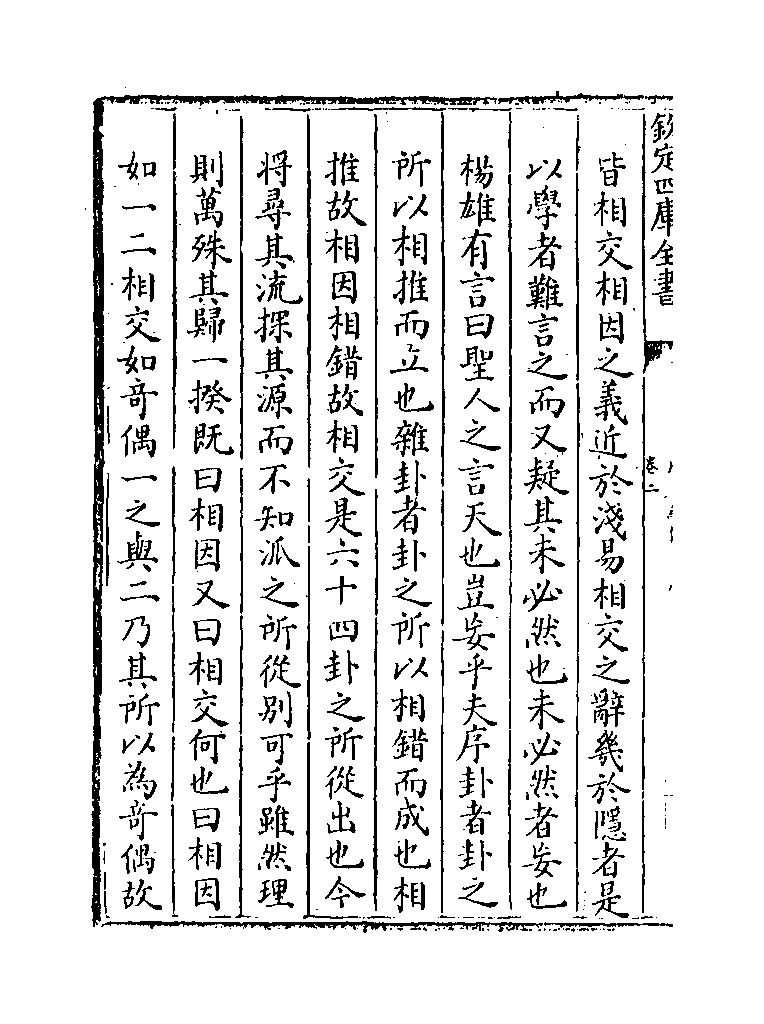 欽定四庫全書
卷二
皆相交相因之義近於淺易相交之辭幾於隱者是
以學者難言之而又疑其未必然也未必然者妄也
楊雄有言曰聖人之言天也豈妄乎夫序卦者卦之
所以相推而立也雜卦者卦之所以相錯而成也相
推故相因相錯故相交是六十四卦之所從出也今
將尋其流探其源而不知派之所從别可乎雖然理
則萬殊其歸一揆既曰相因又曰相交何也曰相因
如一二相交如竒偶一之與二乃其所以為竒偶故